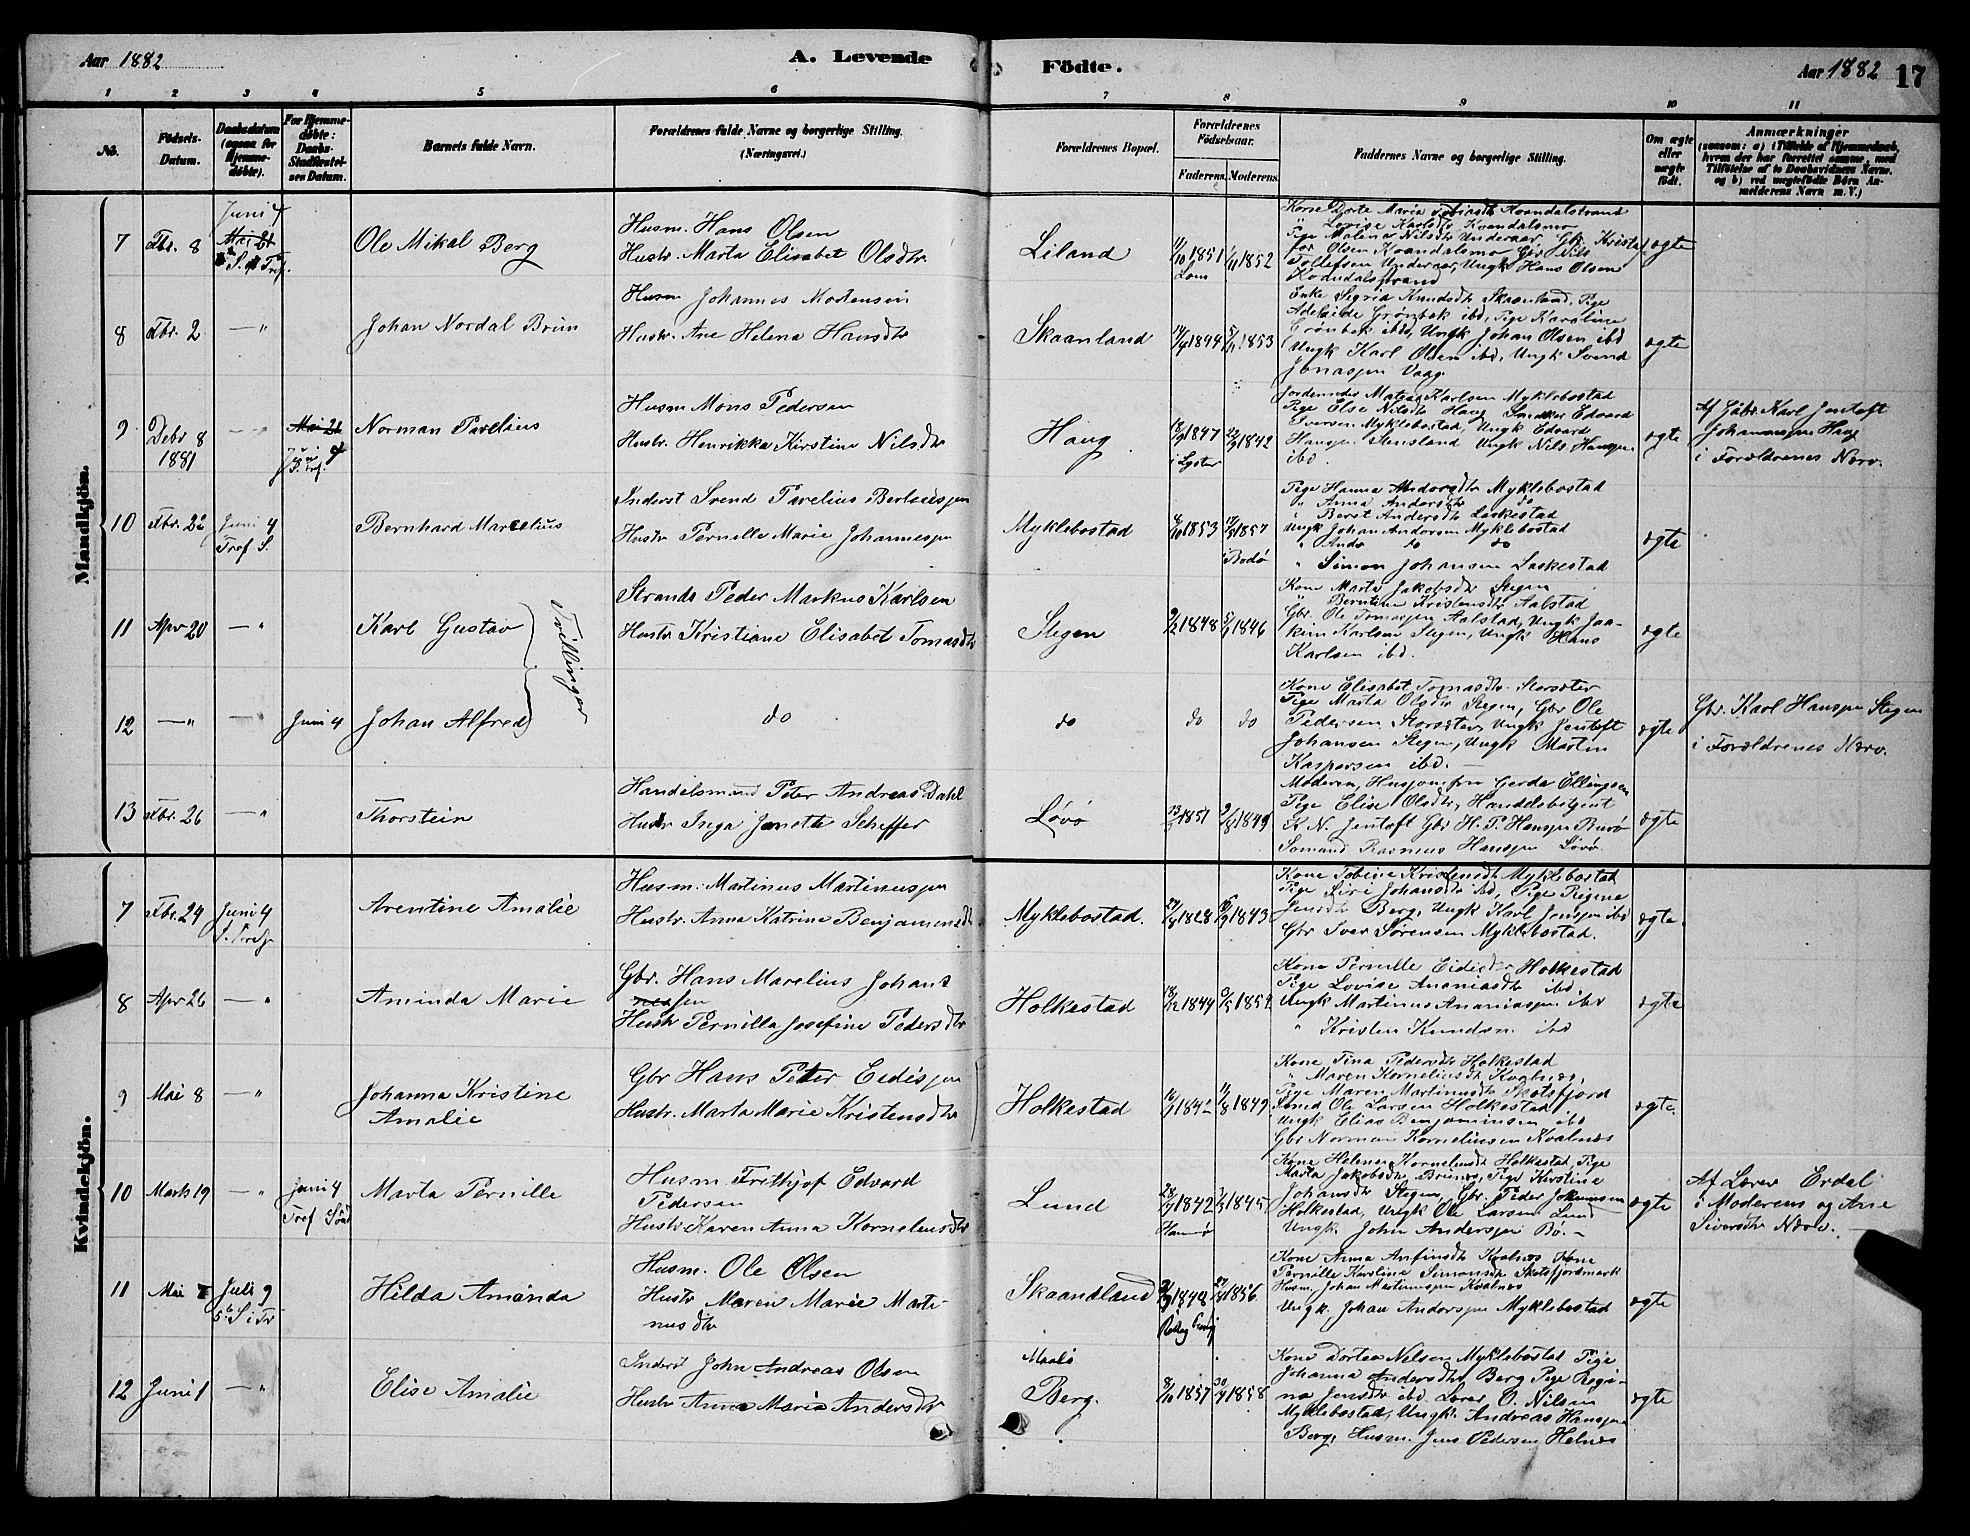 Aar 1882
A. Levende Fødte.
Aar 1882 17
1 2 3 4 5 6 7 8 9 10 11
No.
Fødsels-Datum.
Daabsdatum (ogsaa for Hjemme-døbte).
For Hjemme-døbte: Daabs-Stadfæstel-ses Datum.
Barnets fulde Navn.
Forældrenes fulde Navne og borgerlige Stilling. (Næringsvei.)
Forældrenes Bopæl.
Forældrenes Fødselsaar.
Faderens. Moderens.
Faddernes Navne og borgerlige Stilling.
Om ægte eller uægte født.
Anmærkninger
(saasom: a) i Tilfælde af Hjemmedaab, hvem der har forrettet samme, med Tilføielse af to Daabsvidners Navne, og b) ved uægtefødte Børn Anmelderens Navn m. V.)
Mandkjön.
7 Fbr. 8 Juni 4 Mai 21 Ole Mikal Berg
Husm. Hans Olsen
Hustr. Marta Elisabet Olsdtr.
Liland 1851 1852
Kone Dorte Maria Tobiasdtr Kvandalstrand
Lovise Karlsdtr Kvandalsmo
Pige Malina Nilsdtr Underaar, Gbr. Kristof-
fer Olsen Kvandalsmo Gbr Nils
Tollefsen Underaar, Ungk Hans Olsen
Kvandalstrand
ægte
8 Fbr. 2 —"— Johan Nordal Brun
Husm Johannes Mortensen
Hustr. Ane Helena Hansdtr
Skaanland 1844 1853
Enke Sigrid Knudsdtr Skaanland, Pige
Adelaide Grønbek ibd, Pige Karoline
Grønbek ibd, Ungk Johan Olsen ibd
Ungk Karl Olsen ibd, Ungk Svend
Jonassen Vaag.
ægte
9 Debr 8 1881 Mai 21 Juni 4 Norman Pavelius
Husm Mons Pedersen
Hustr. Henrikka Kirstine Nilsdtr
Haug 1847 i Lyster 1842
Matias Karlsen Myklebostad
Pige Else Nilsdtr Haug Edvard
Eversen Myklebostad, Ungk Edvard
Hansen Stensland Ungk Nils Hansen
ibd.
ægte
Af Gbr. Karl Jentoft
Johannessen Haug
i Forældrenes Nærv.
10 Fbr. 22 Juni 4 Tref S. Bernhard Marcelius
Inderst Svend Pavelius Berteussen
Hustr Pernille Marie Johannessen
Myklebostad 1853 1857 i Bodø
Pige Hanna Andorsdtr Myklebostad
" Anna Andorsdtr do
" Beret Andersdtr Laskestad
Ungk Johan Andorsen Myklebostad
" Ando do do
" Simon Johansen Laskestad
ægte
11 Apr 20 —"— Karl Gustav
Trillinger
Strands Peder Markus Karlsen
Hustr. Kristiane Elisabet Tomasdtr
Stegen 1848 1846
Kone Marta Jakobsdtr Stegen
" Berntine Kristensdtr Aalstad
Gbr. Ole Tomassen Aalstad, Ungk Joa-
kim Karlsen Stegen, Ungk Hans
Karlsen ibd.
ægte
12 —"— Juni 4 Johan Alfred
do
do do do
Kone Elisabet Tomasdtr. Storsæter
Pige Marta Olsdtr Stegen, Gbr Ole
Pedersen Storsæter, Ungk Jentoft
Johansen Stegen, Ungk Martin
Kaspersen ibd.
ægte
Gbr. Karl Hanssen Stegen
i Forældrenes Nærv.
13 Fbr. 26 —"— Thorstein
Handelsmand Peter Andreas Dahl
Hustr Inga Janette Scheffer
Løvø 1851 1849
Moderen, Husjomfru Gerda Ellingsen
Pige Elise Olsdtr, Handelsbetjent
K N. Jentoft Gbr H. P. Hanssen Burø
Sømand Rasmus Hanssen Løvø
ægte
Kvindekjön.
7 Fbr. 24 Juni 4 Arentine Amalie
Husm. Martinus Martinussen
Hustr. Anna Katrina Benjaminsdtr
Myklebostad. 1828 1843
Kone Tobine Kristensdtr Myklebostad
Pige Siri Johansdtr ibd, Pige Regine
Jensdtr Berg, Ungk Karl Jenssen ibd
Gbr Iver Sørensen Myklebostad.
ægte
8 Apr 26 —"— Aminda Marie
Gbr. Hans Marelius Johans
sen
Hustr Pernilla Josefine Pedersdtr
Holkestad 1844 1854
Kone Pernille Eidisdtr Holkestad
Pige Lovise Ananiasdtr ibd
Ungk Martinus Ananiassen ibd
" Kristen Knudsen ibd
ægte
9 Mai 8 —"— Johanna Kristine
Amalie
Gbr Hans Peter Eidissen
Hustr. Marta Marie Kristensdtr
Holkestad 1842 1849
Kone Tina Pedersdtr Holkestad
" Maren Korneliusdtr Kvalnes,
Pige Maren Martinusdtr Skotsfjord
Ole Larsen Holkestad
Ungk Elias Benjaminsen ibd
Gbr Norman Korneliusen Kvalnes
ægte
10 Marts 19 —"— Juni 4 Marta Pernille
Husm Frithjof Edvard
Pedersen
Hustr Karen Anna Korneliusdtr
Lund 1842 1845
Kone Helena Korneliusdtr Holkestad, Pige
Marta Jakobsdtr Brunes, Pige Kirstine
Johansdtr Stegen, Gbr. Peder Johannsen
Holkestad, Ungk Ole Larsen Lund
Ungk. John Anderssen Bø. —
ægte
Af Lærer Erdal
i Moderens og Ane
Siversdtr Nærv. —
11 Mai Juli 9 Hilda Aminda
Husm. Ole Olsen
Hustr Maren Marie Marti-
nusdtr
Skaandland 1848 1856
Kone Anna Anfinsdtr Kvalnes Kone
Pernille Karoline Simonsdtr Skotsfjordmark
Husm. Johan Martinussen Kvalnes
Ungk. Johan Andorssen Myklebostad
ægte
12 Juni 1 —"— Elise Amalie
Inderst John Andreas Olsen
Hustr Anna Maria Andersdtr
Maalø
Berg. 1857 1858
Kone Dortea Nelsen Myklebostad Pige
Johanna Andersdtr Berg Pige Regi-
na Jensdtr ibd Lærer O. Nilsen
Myklebostad, Ungk. Andreas Hanssen
Berg, Husm. Jens Pedersen Helnes
ægte